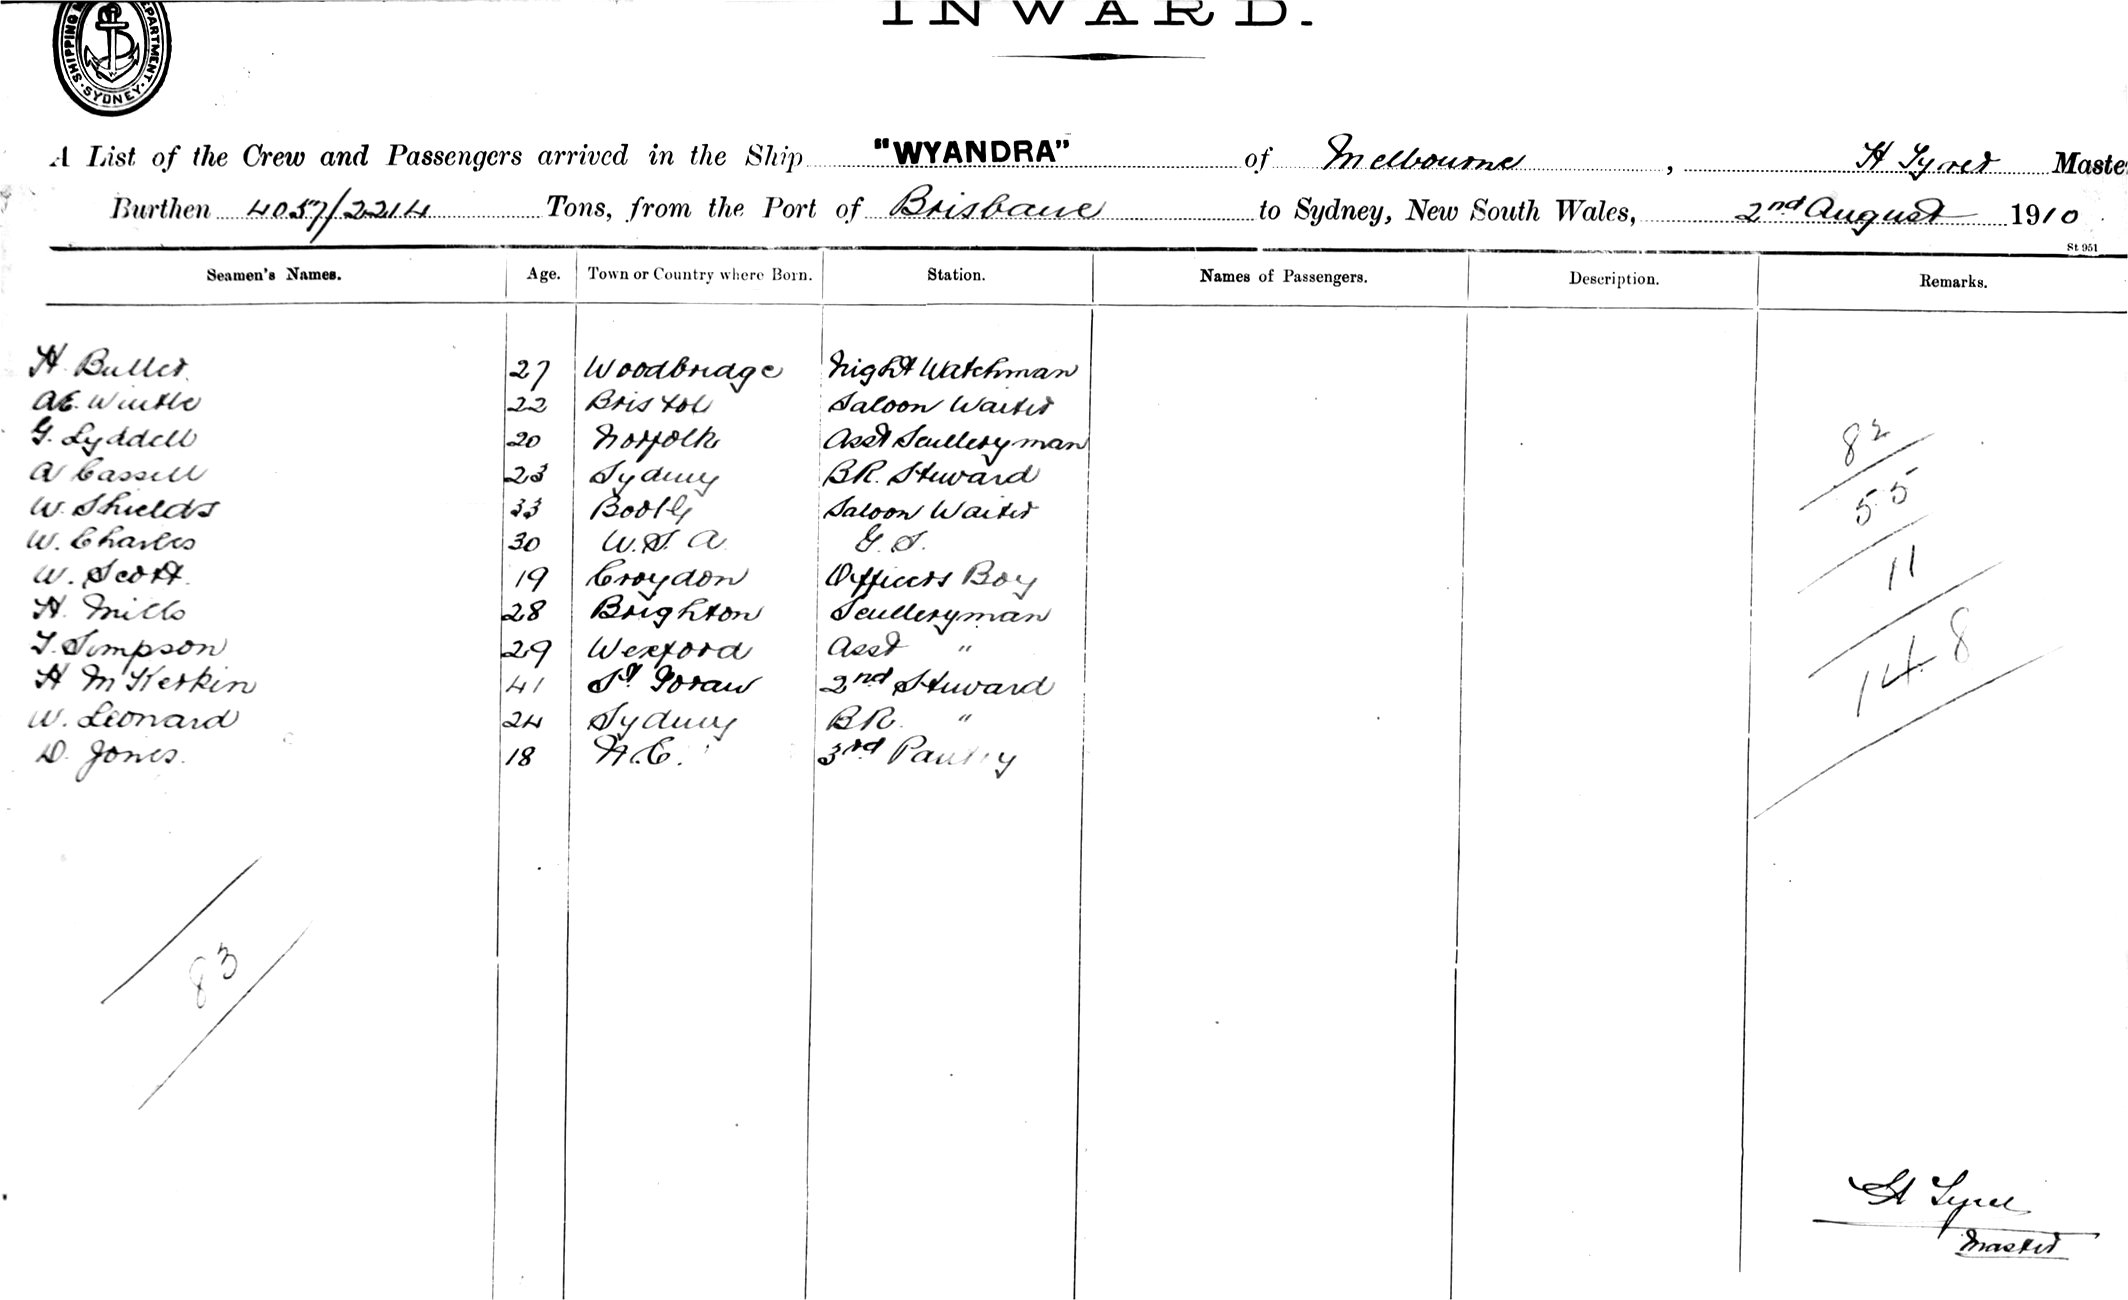 INWARD.
SHIPPING DEPARTMENT. SYDNEY.
A List of the Crew and Passengers arrived in the Ship "WYANDRA" of Melbourne, H Tyrer Maste
Burthen 4057/2214 Tons, from the Port of Brisbane to Sydney, New South Wales, 2nd August 1910
St 951
Seamen's Names. Age. Town or Country where Born. Station. Names of Passengers. Description. Remarks.
H Buller 27 Woodbridge Night Watchman
A.E. Wintle 22 Bristol Saloon Waiter
G. Lyddell 20 Norfolk Asst Sculleryman
A Cassell 23 Sydney BR. Steward
W. Shields 33 Bootle Saloon Waiter
W. Charles 30 U.S.A G.S.
W. Scott 19 Croydon Officers Boy
H. Mills 28 Brighton Sculleryman
T. Simpson 29 Wexford Asst "
H McKerkin 41 St 2nd Steward
W. Leonard 24 Sydney BR. "
D. Jones. 18 N.C. 3rd Pantry
82
55
11
148
83
H Tyrer
Master